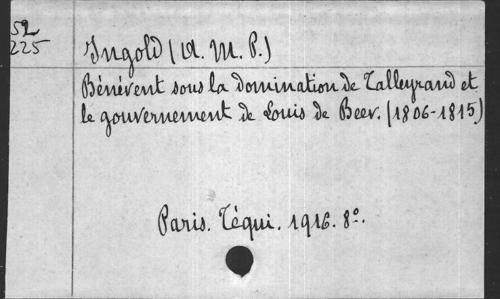 52
225
Ingold (A. M. P.)
Bénévent sous la domination de Talleyrand et
le gouvernement de Louis de Beer. (1806-1815)
Paris. Téqui. 1916. 8º.